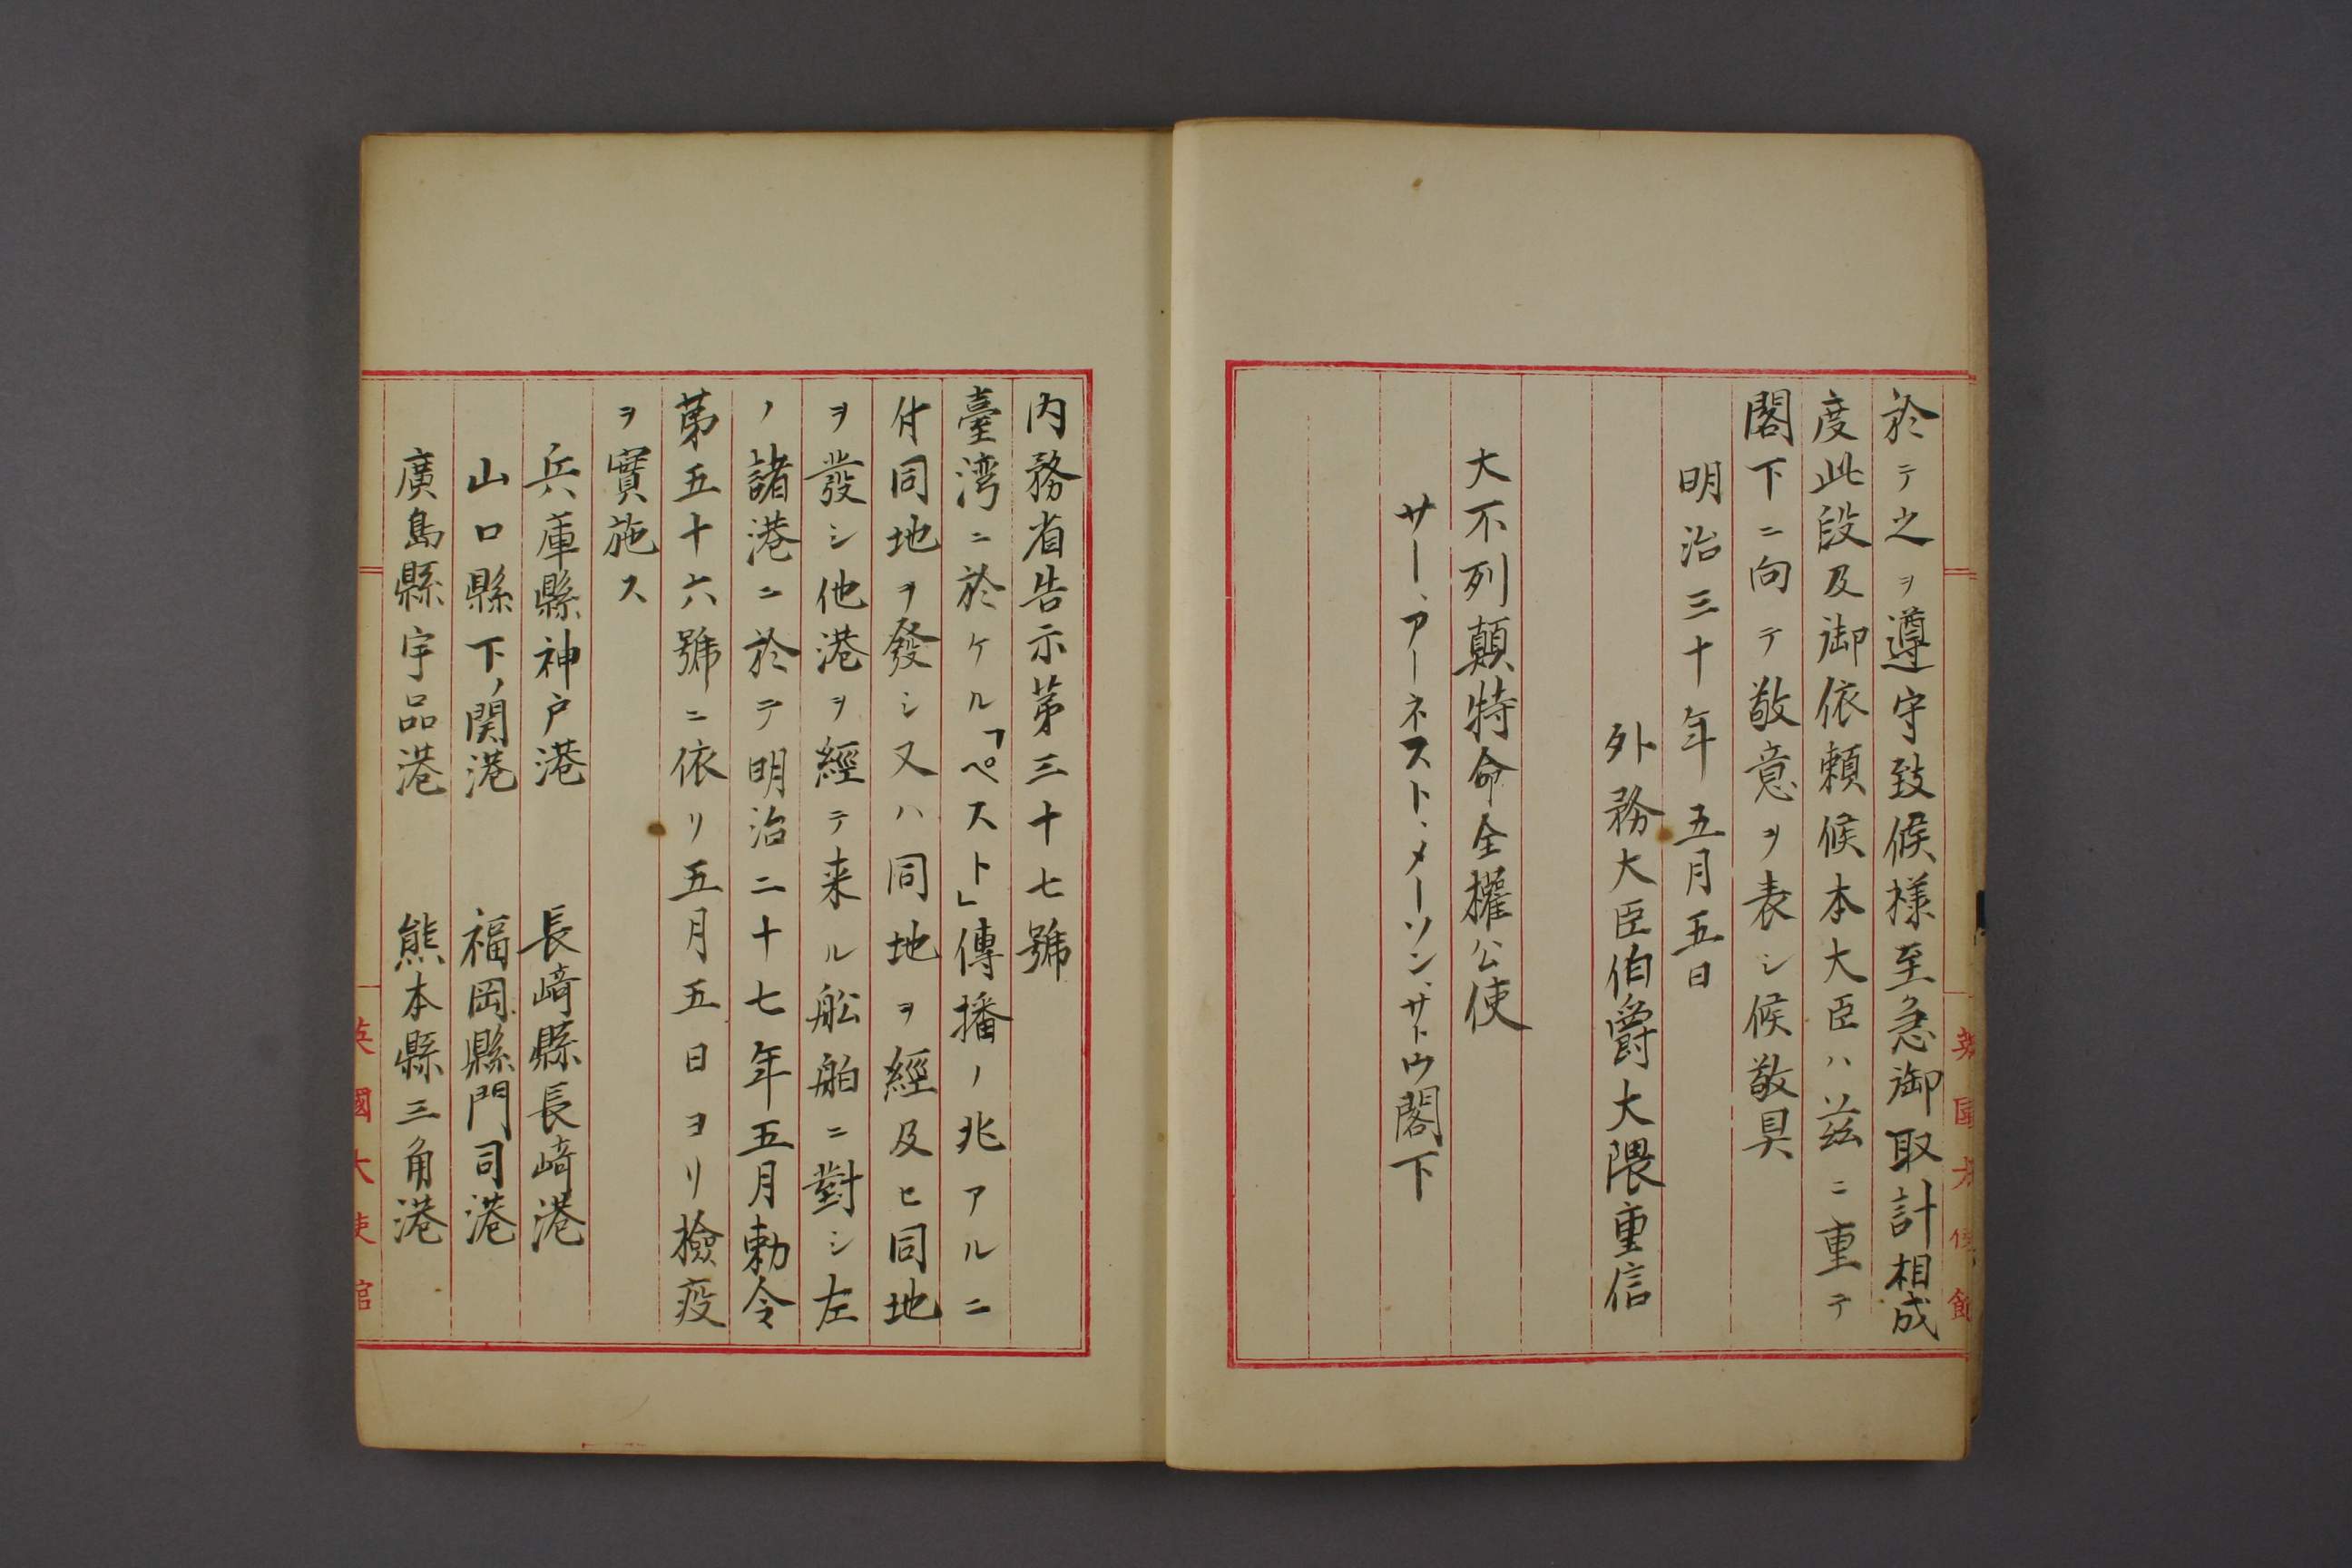 於テ之ヲ遵守致候様至急御取計相成
度此段及御依頼候本大臣ハ茲ニ重テ
閣下ニ向テ敬意ヲ表シ候敬具
明治三十年五月五日
外務大臣伯爵大隈重信
大不列顛特命全權公使
サー、アーネスト、メーソン、サトウ閣下
内務省告示第三十七號
臺湾ニ於ケル「ペスト」傳播ノ兆アルニ
付同地ヲ發シ又ハ同地ヲ經及ヒ同地
ヲ發シ他港ヲ經テ来ル舩舶ニ對シ左
ノ諸港ニ於テ明治二十七年五月勅令
第五十六號ニ依リ五月五日ヨリ撿疫
ヲ實施ス
兵庫縣神戸港 長﨑縣長﨑港
山口縣下ノ関港 福岡縣門司港
廣島縣宇品港 熊本縣三角港
英國大使館